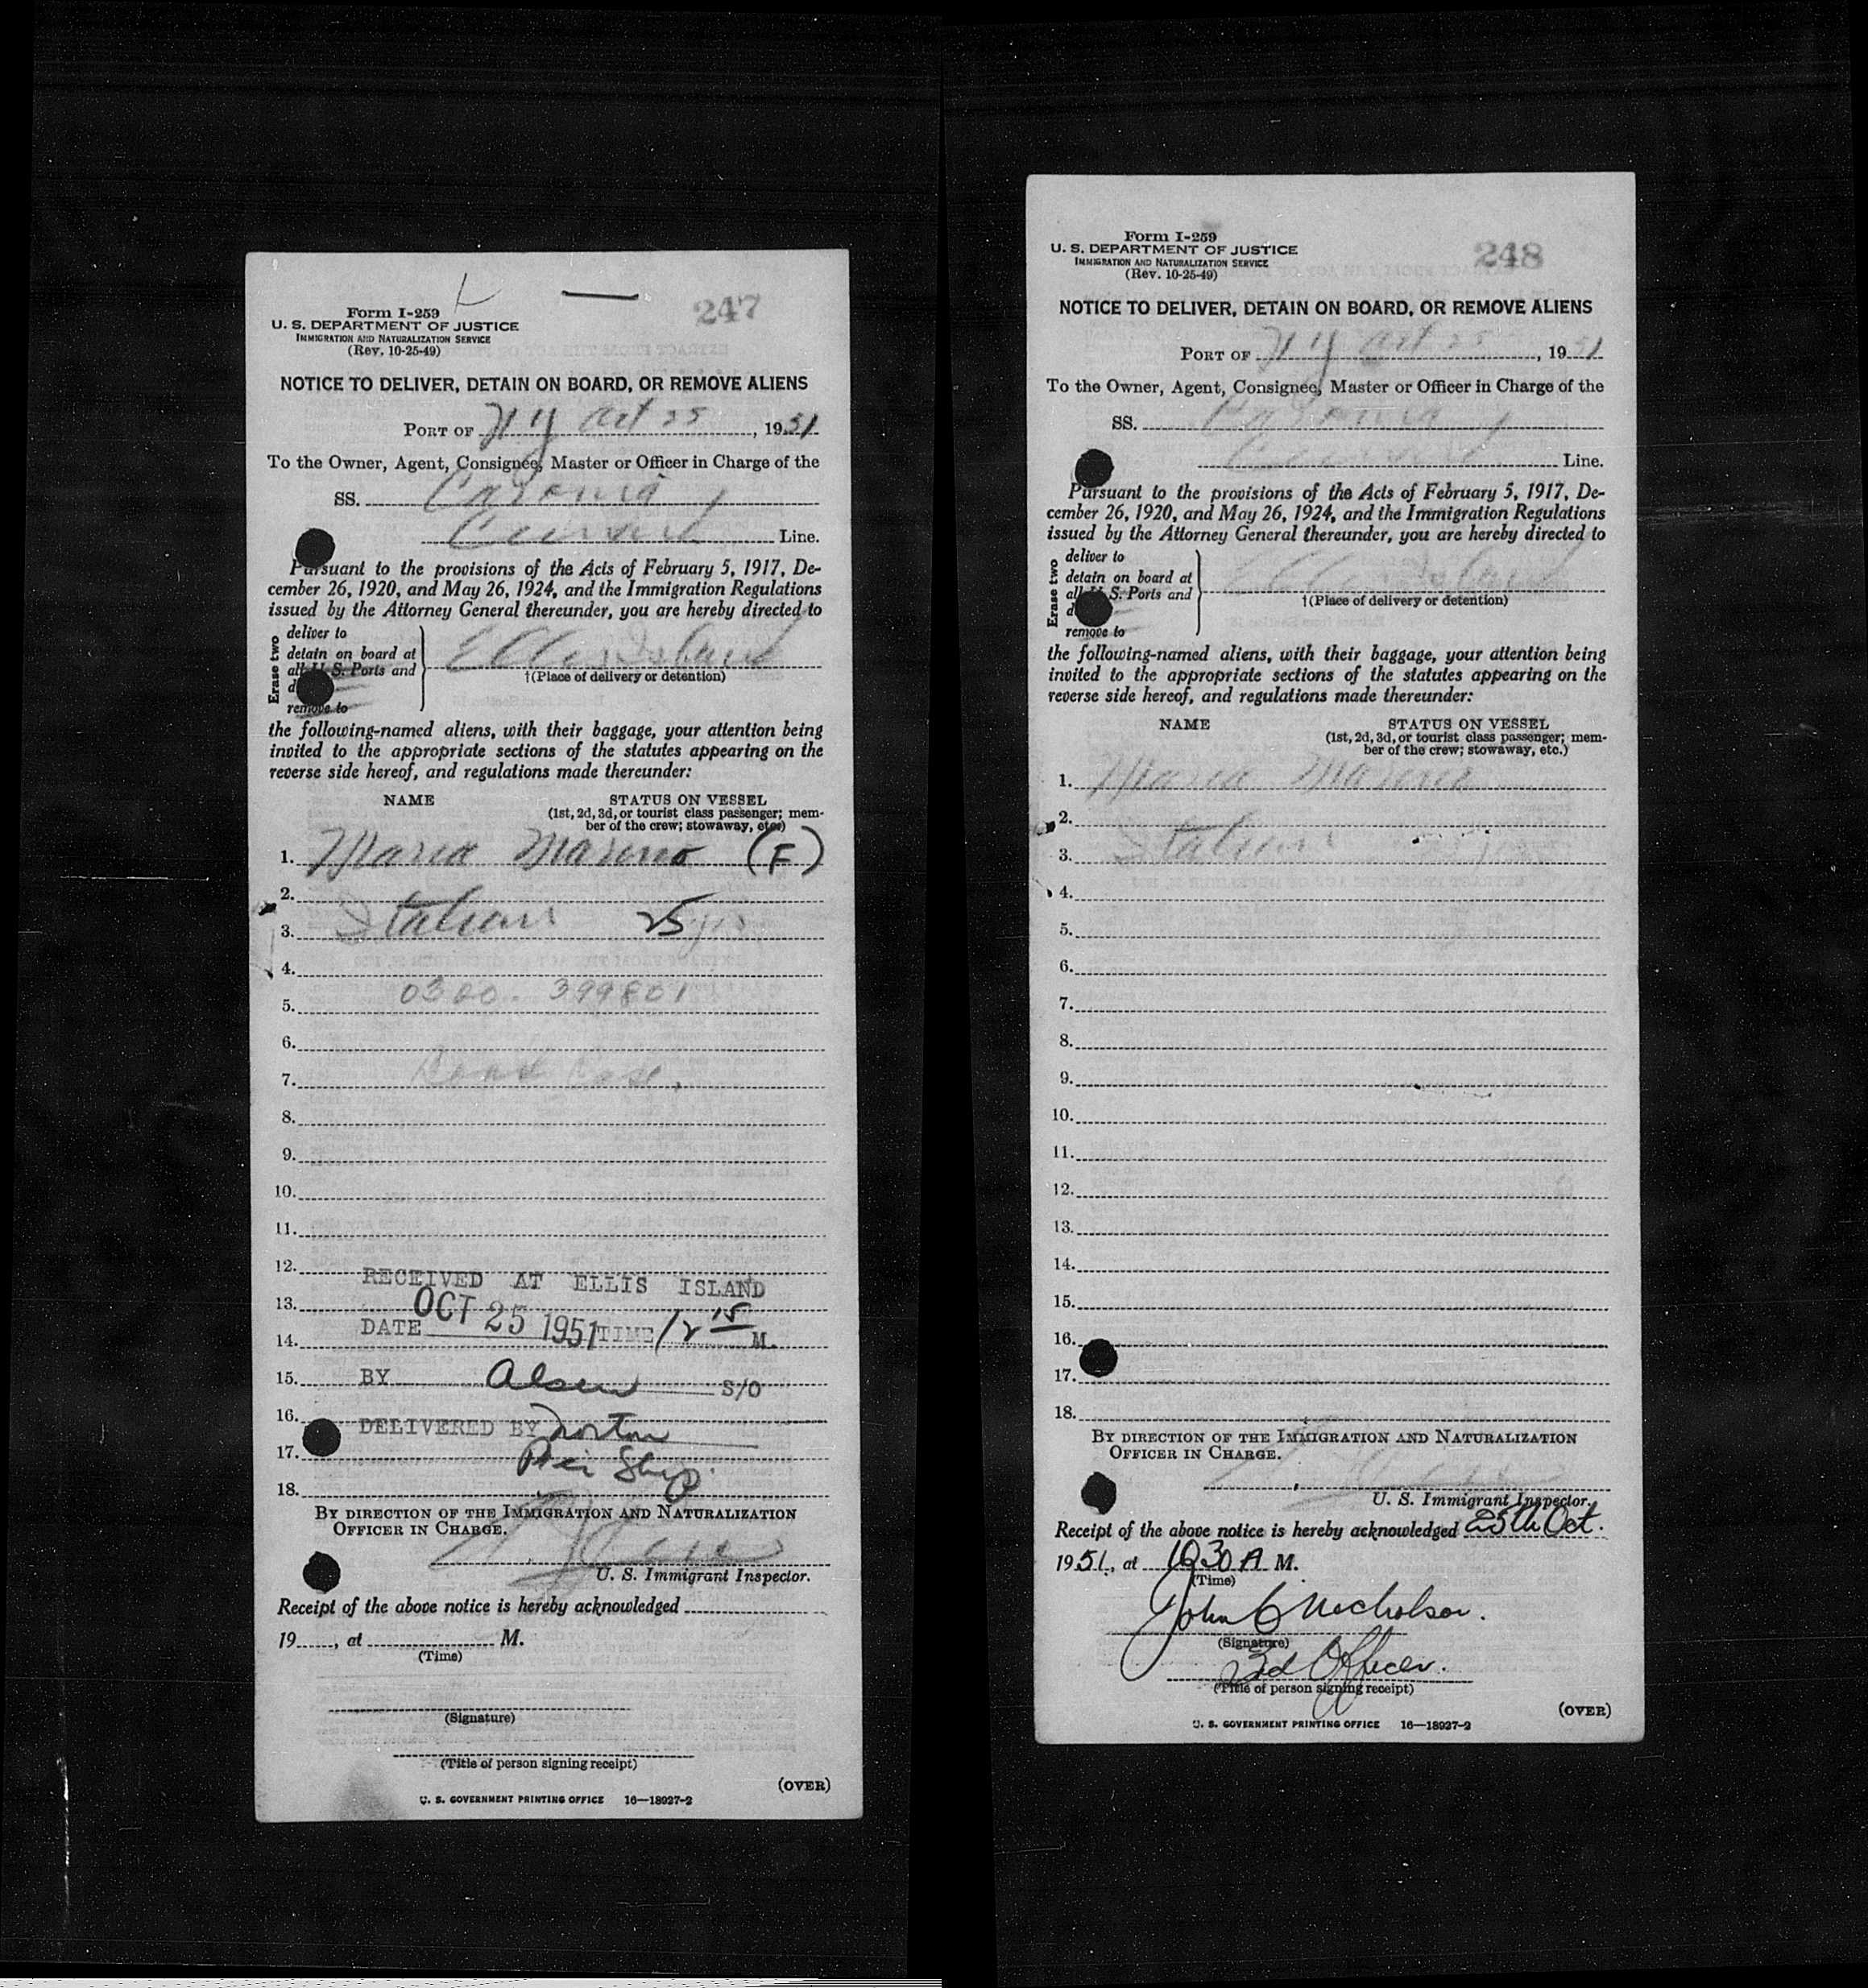 247
Form I-259
U. S. DEPARTMENT OF JUSTICE
IMMIGRATION AND NATURALIZATION SERVICE
(Rev. 10-25-49)
NOTICE TO DELIVER, DETAIN ON BOARD, OR REMOVE ALIENS
PORT OF N Y Oct 25, 1951
To the Owner, Agent, Consignee, Master or Officer in Charge of the
SS. Caronia
Cunard Line.
Pursuant to the provisions of the Acts of February 5, 1917, De-
cember 26, 1920, and May 26, 1924, and the Immigration Regulations
issued by the Attorney General thereunder, you are hereby directed to
Erase two
deliver to
detain on board at
all U. S. Ports and
remove to
Ellis Island
†(Place of delivery or detention)
the following-named aliens, with their baggage, your attention being
invited to the appropriate sections of the statutes appearing on the
reverse side hereof, and regulations made thereunder:
NAME STATUS ON VESSEL
(1st, 2d, 3d, or tourist class passenger; mem-
ber of the crew; stowaway, etc.)
1. Maria Marino (F)
2.
3. Italian 25 yrs
4.
5. 0300. 399801
6.
7. Case.
8.
9.
10.
11.
12.
RECEIVED AT ELLIS ISLAND
13.
DATE OCT 25 1951 TIME 12 15 M.
14.
15. BY Olsen S/O
16.
DELIVERED BY Norton
17. Pier Sup.
18.
BY DIRECTION OF THE IMMIGRATION AND NATURALIZATION
OFFICER IN CHARGE.
U. S. Immigrant Inspector.
Receipt of the above notice is hereby acknowledged
19, at M.
(Time)
(Signature)
(Title of person signing receipt)
(OVER)
U. S. GOVERNMENT PRINTING OFFICE 16—18927-2
248
Form I-259
U. S. DEPARTMENT OF JUSTICE
IMMIGRATION AND NATURALIZATION SERVICE
(Rev. 10-25-49)
NOTICE TO DELIVER, DETAIN ON BOARD, OR REMOVE ALIENS
PORT OF N Y Oct 25, 1951
To the Owner, Agent, Consignee, Master or Officer in Charge of the
SS. Caronia
Cunard Line.
Pursuant to the provisions of the Acts of February 5, 1917, De-
cember 26, 1920, and May 26, 1924, and the Immigration Regulations
issued by the Attorney General thereunder, you are hereby directed to
Erase two
deliver to
detain on board at
all U. S. Ports and
remove to
Ellis Island
†(Place of delivery or detention)
the following-named aliens, with their baggage, your attention being
invited to the appropriate sections of the statutes appearing on the
reverse side hereof, and regulations made thereunder:
NAME STATUS ON VESSEL
(1st, 2d, 3d, or tourist class passenger; mem-
ber of the crew; stowaway, etc.)
1. Maria Marino
2.
3. Italian
4.
5.
6.
7.
8.
9.
10.
11.
12.
13.
14.
15.
16.
17.
18.
BY DIRECTION OF THE IMMIGRATION AND NATURALIZATION
OFFICER IN CHARGE.
U. S. Immigrant Inspector.
Receipt of the above notice is hereby acknowledged 25th Oct.
1951, at 1030 A M.
(Time)
John C Nicholson.
(Signature)
3rd Officer.
(Title of person signing receipt)
(OVER)
U. S. GOVERNMENT PRINTING OFFICE 16—18927-2